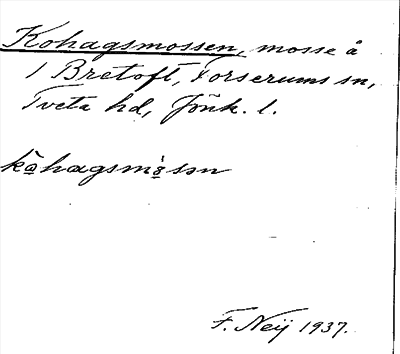 Kohagsmossen, mosse å
1 Bretoft, Forserums sn,
Tveta hd, Jönk. l.
kohagsmosən
F. Neij 1937.